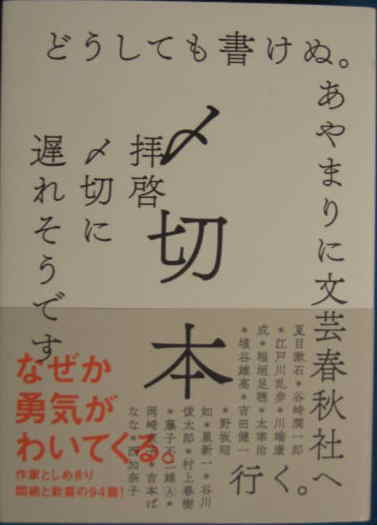 どうしても書けぬ。
あやまりに文芸春秋社へ
行く。
〆切本
拝啓
〆切に
遅れそうです
夏目漱石＊谷崎潤一郎
＊江戸川乱歩＊川端康
成＊稲垣足穂＊太宰治
＊埴谷雄高＊吉田健一
＊野坂昭
如＊星新一＊谷川
俊太郎＊村上春樹
＊藤子不二雄Ⓐ＊
岡崎京子＊吉本ば
なな＊西加奈子
なぜか
勇気が
わいてくる。
作家としめきり
悶絶と歓喜の94篇！